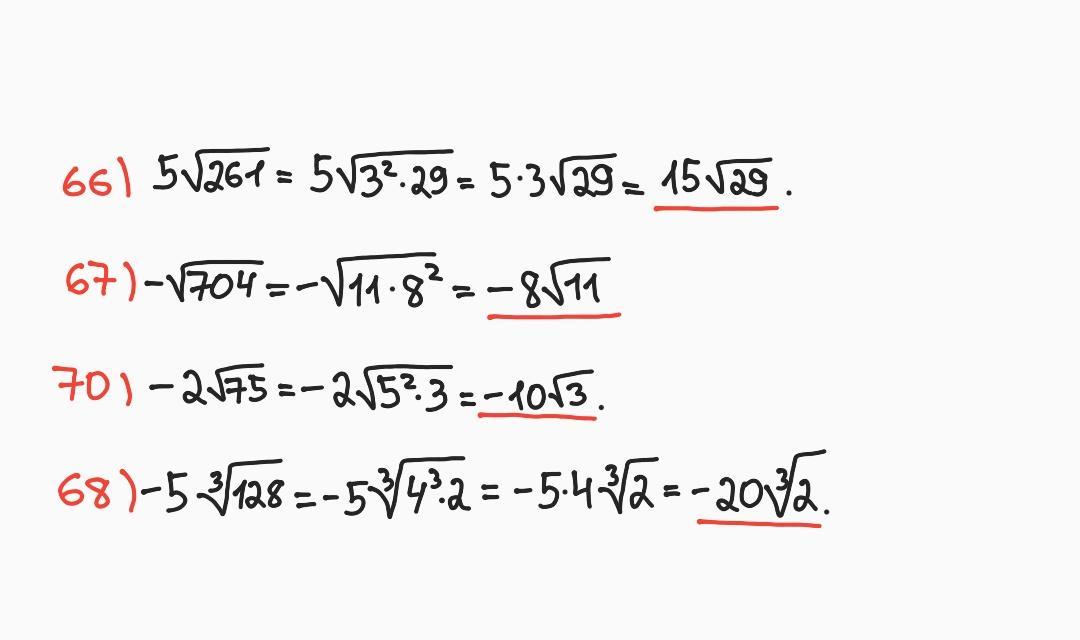 66) 5√261 = 5√3²·29 = 5·3√29 = 15√29 .
67) -√704 = -√11·8² = -8√11
70) -2√75 = -2√5²·3 = -10√3 .
68) -5·∛128 = -5∛4³·2 = -5·4∛2 = -20∛2 .